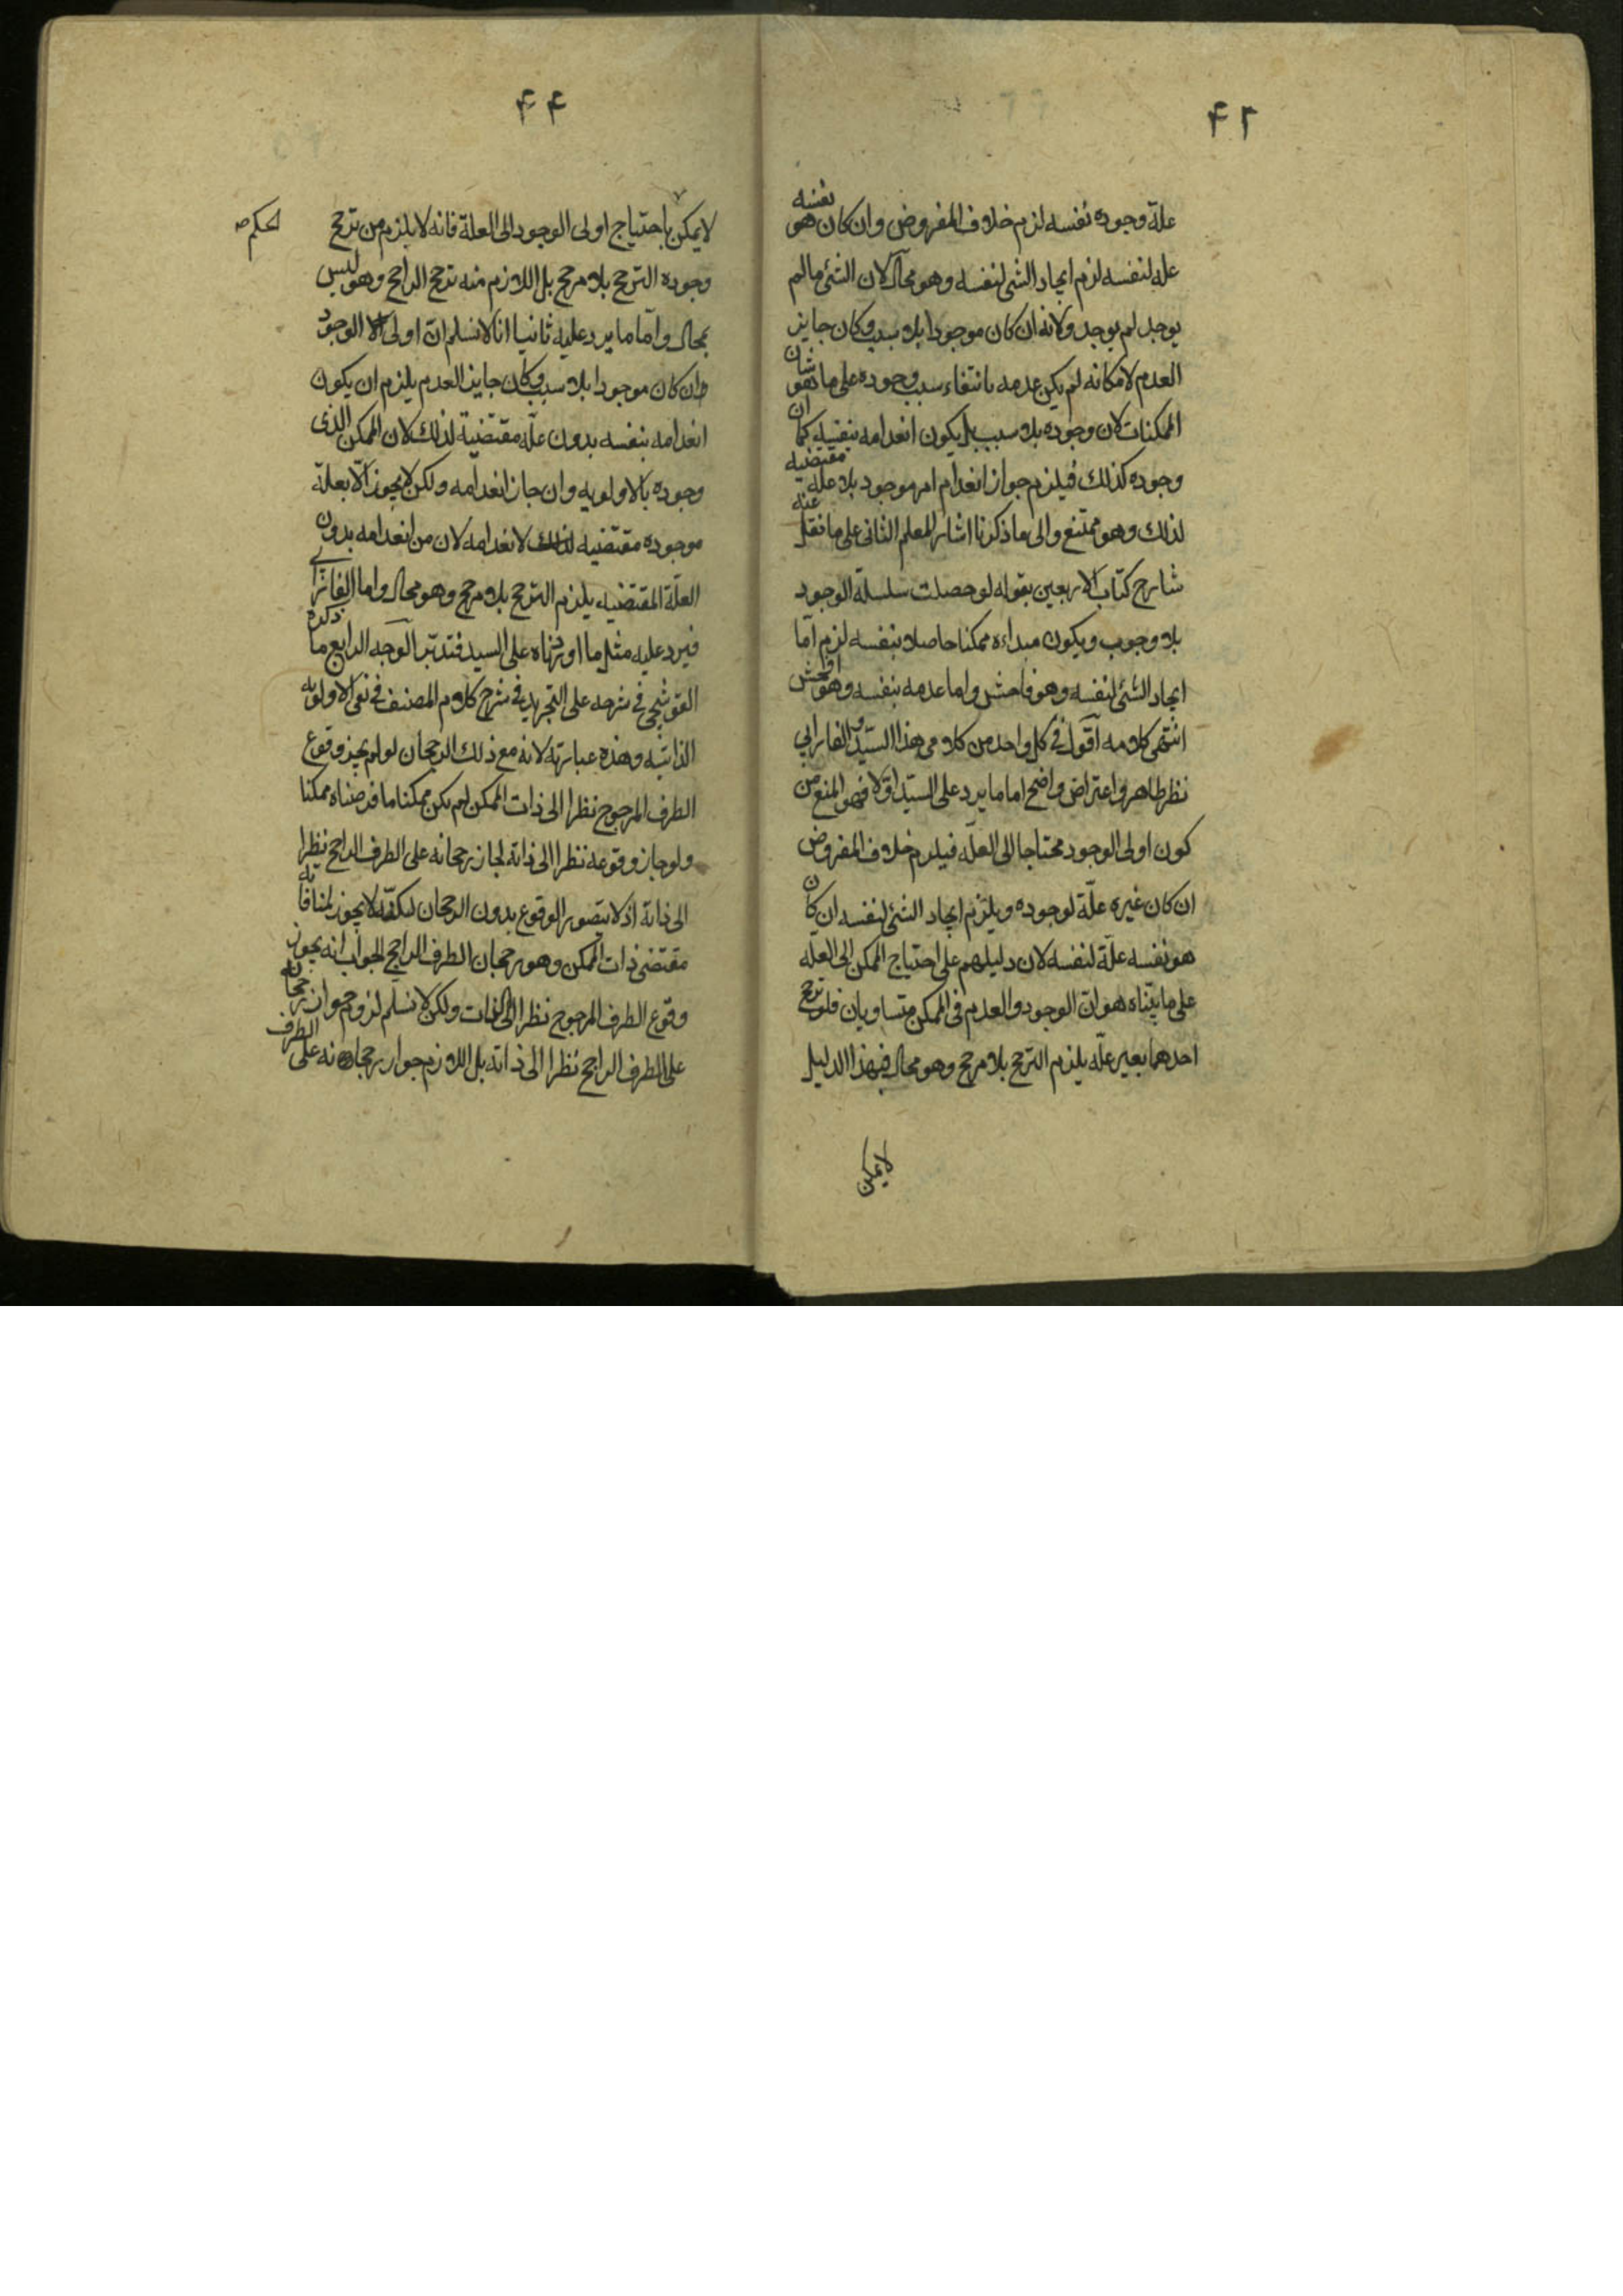 ۴۲
علة وجوده نفسه لزم خلاف المفروض وان كان هو نفسه
علة لنفسه لزم ايجاد الشئ لنفسه وهو محال لان الشئ مالم
يوجد لم يوجد ولانه ان كان موجودا بلا سبب وكان جايز
العدم لامكانه لم يكن عدمه بانتفاء سبب وجوده على ما هو شان
الممكنات لان وجوده بلا سبب بل يكون انعدامه بنفسه كما ان
وجوده كذلك فيلزم جواز انعدام امر موجود بلا علة مقتضيه
لذلك وهو ممتنع والى ما ذكرنا اشار المعلم الثانى على ما نقل عنه
شارح كتاب الاربعين بقوله لو حصلت سلسلة الوجود
بلا وجوب ويكون مبداءه ممكنا حاصلا بنفسه لزم اما
ايجاد الشئ لنفسه وهو فاحش واما عدمه بنفسه وهو افحش
انتهى كلامه اقول فى كل واحد من كلامى هذا السيد والفارابي
نظر ظاهر واعتراض واضح اما ما يرد على السيد اولا فهو المنع من
كون اولى الوجود محتاجا الى العلة فيلزم خلاف المفروض
ان كان غيره علة لوجوده ويلزم ايجاد الشئ لنفسه ان كان
هو نفسه علة لنفسه لان دليلهم على احتياج الممكن الى العلة
على ما بيناه هو ان الوجود والعدم فى الممكن متساويان فلو ترجح
احدهما بغير علة يلزم الترجح بلا مرجح وهو محال فبهذا الدليل
لا يمكن
۴۴
لا يمكن احتياج اولى الوجود الى العلة فانه لا يلزم من ترجح
الحكم صـ
وجوده الترجح بلا مرجح بل اللازم منه ترجح الراجح وهو ليس
بمحال واما ما يرد عليه ثانيا انا لا نسلم ان اولى الوجود
وان كان موجودا بلا سبب وكان جايز العدم يلزم ان يكون
انعدامه بنفسه بدون علة مقتضية لذلك لان الممكن الذى
وجوده بالاولويه وان جاز انعدامه ولكن لا يجوز الا بعلة
موجوده مقتضيه لانعدامه لان من انعدامه بدون
العلة المقتضيه يلزم الترجح بلا مرجح وهو محال واما الفارابي
فيرد عليه مثل ما اوردناه على السيد فتدبر الوجه الرابع ما ذكره
القوشجى فى شرحه على التجريد فى شرح كلام المصنف فى نفى الاولويه
الذاتيه وهذه عبارته لانه مع ذلك الرجحان لو لم يجز وقوع
الطرف المرجوح نظرا الى ذات الممكن لم يكن ممكنا ما فرضناه ممكنا
ولو جاز وقوعه نظرا الى ذاته لجاز رجحانه على الطرف الراجح نظرا
الى ذاته اذ لا يتصور الوقوع بدون الرجحان لكنه لا يجوز لمنافاته
مقتضى ذات الممكن وهو رجحان الطرف الراجح الجواب انه يجوز
وقوع الطرف المرجوح نظرا الى الذات ولكن لا نسلم لزوم جواز رجحانه
على الطرف الراجح نظرا الى ذاته بل اللازم جواز رجحانه على الطرف